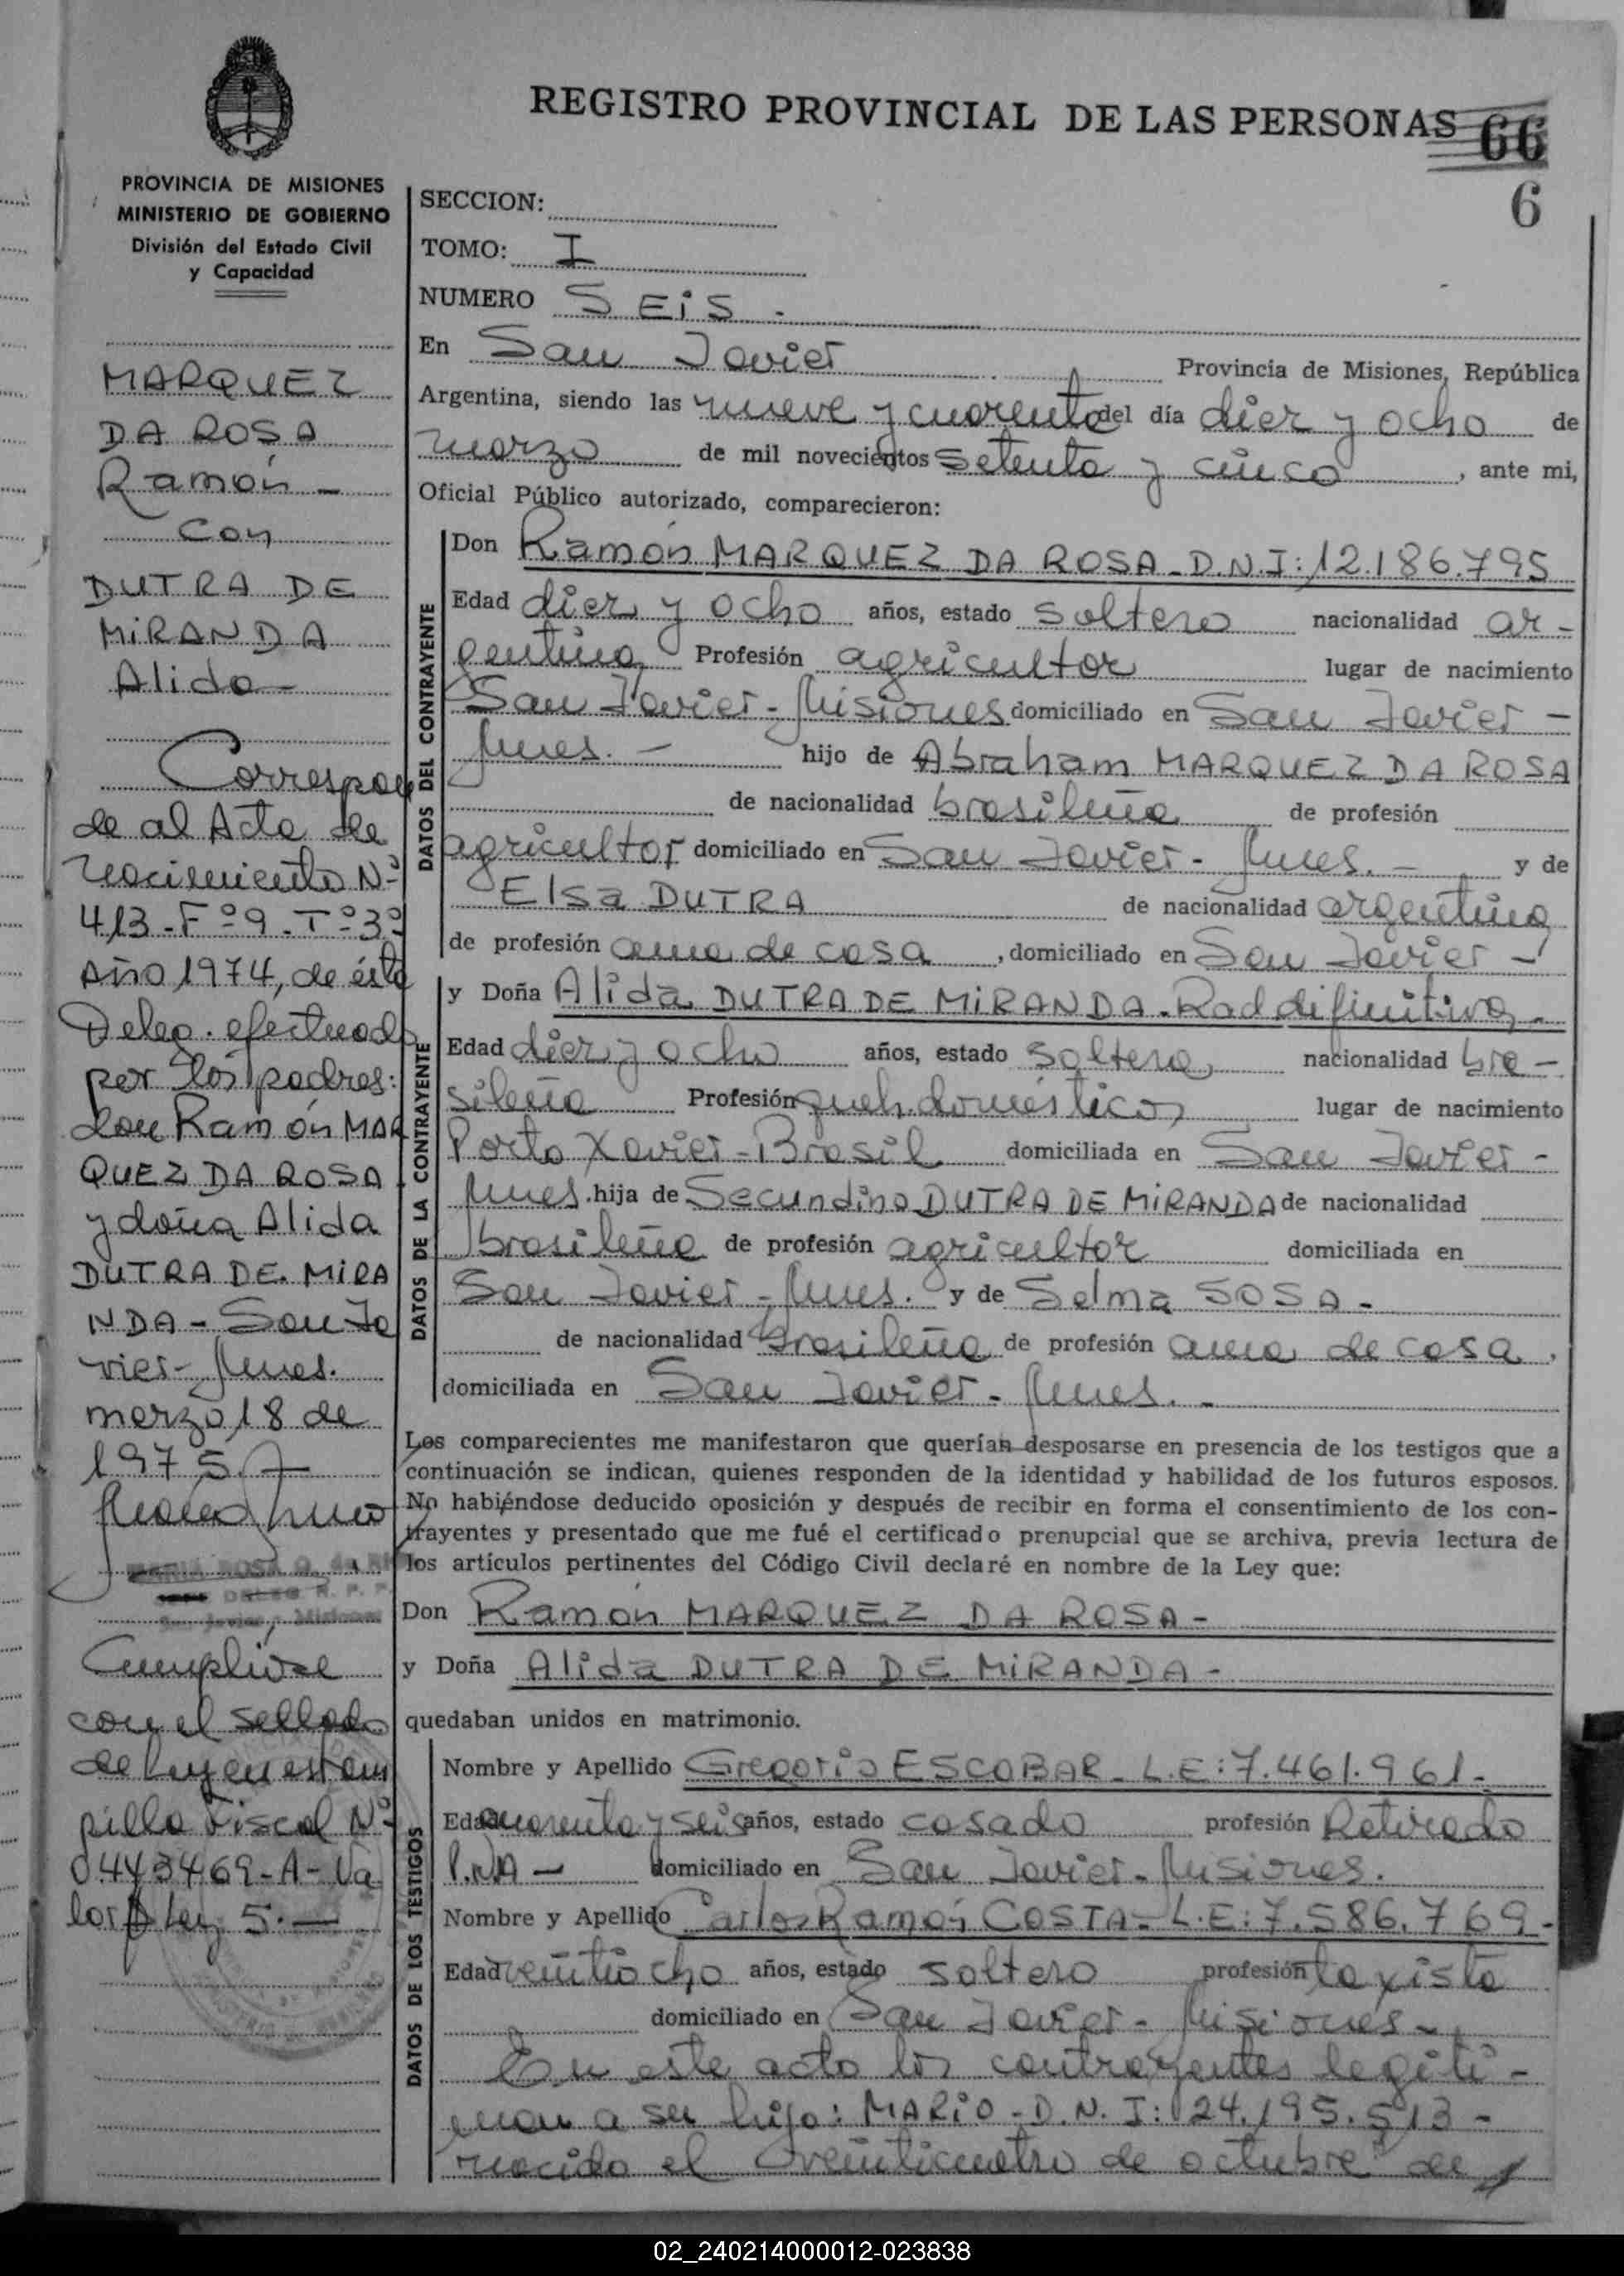 REGISTRO PROVINCIAL DE LAS PERSONAS 66
6
PROVINCIA DE MISIONES
MINISTERIO DE GOBIERNO
División del Estado Civil
y Capacidad
MARQUEZ
DA ROSA
Ramón -
con
DUTRA DE
MIRANDA
Alida -
Correspon
de al Acta de
nacimiento Nº
413 - Fº 9 - Tº 3º
Año 1974, de ésta
Deleg. efectuada
por los padres:
don Ramón MAR
QUEZ DA ROSA
y doña Alida
DUTRA DE MIRA
NDA - San Ja
vier - Mnes.
marzo 18 de
1975.
MARIA ROSA
Cumplióse
con el sellado
de ley en estam
pilla Fiscal Nº
0443469 - A - Va
lor $ Ley 5. -
SECCION:
TOMO: I
NUMERO SEIS -
En San Javier Provincia de Misiones, República
Argentina, siendo las nueve y cuarenta del día diez y ocho de
marzo de mil novecientos setenta y cinco, ante mi,
Oficial Público autorizado, comparecieron:
DATOS DEL CONTRAYENTE
Don Ramón MARQUEZ DA ROSA - D.N.I: 12.186.795
Edad diez y ocho años, estado soltero nacionalidad ar-
gentina Profesión agricultor lugar de nacimiento
San Javier - Misiones domiciliado en San Javier -
Mnes. - hijo de Abraham MARQUEZ DA ROSA
de nacionalidad brasileña de profesión
agricultor domiciliado en San Javier - Mnes. - y de
Elsa DUTRA de nacionalidad argentina
de profesión ama de casa, domiciliado en San Javier -
DATOS DE LA CONTRAYENTE
y Doña Alida DUTRA DE MIRANDA - Rad difinitiva -
Edad diez y ocho años, estado soltera, nacionalidad bra-
sileña Profesión queh. domésticos lugar de nacimiento
Porto Xavier - Brasil domiciliada en San Javier -
Mnes. hija de Secundino DUTRA DE MIRANDA de nacionalidad
brasileña de profesión agricultor domiciliada en
San Javier - Mnes. y de Selma SOSA -
de nacionalidad brasileña de profesión ama de casa,
domiciliada en San Javier - Mnes. -
Los comparecientes me manifestaron que querían desposarse en presencia de los testigos que a
continuación se indican, quienes responden de la identidad y habilidad de los futuros esposos.
No habiéndose deducido oposición y después de recibir en forma el consentimiento de los con-
trayentes y presentado que me fué el certificado prenupcial que se archiva, previa lectura de
los artículos pertinentes del Código Civil declaré en nombre de la Ley que:
Don Ramón MARQUEZ DA ROSA -
y Doña Alida DUTRA DE MIRANDA -
quedaban unidos en matrimonio.
DATOS DE LOS TESTIGOS
Nombre y Apellido Gregorio ESCOBAR - L.E: 7.461.961 -
Edad cuarenta y seis años, estado casado profesión Retirado
P.N.A - domiciliado en San Javier - Misiones.
Nombre y Apellido Carlos Ramón COSTA - L.E: 7.586.769 -
Edad veintiocho años, estado soltero profesión taxista
domiciliado en San Javier - Misiones -
En este acto los contrayentes legiti-
man a su hijo: MARIO - D.N.I: 24.195.513 -
nacido el veinticuatro de octubre de
02_240214000012-023838